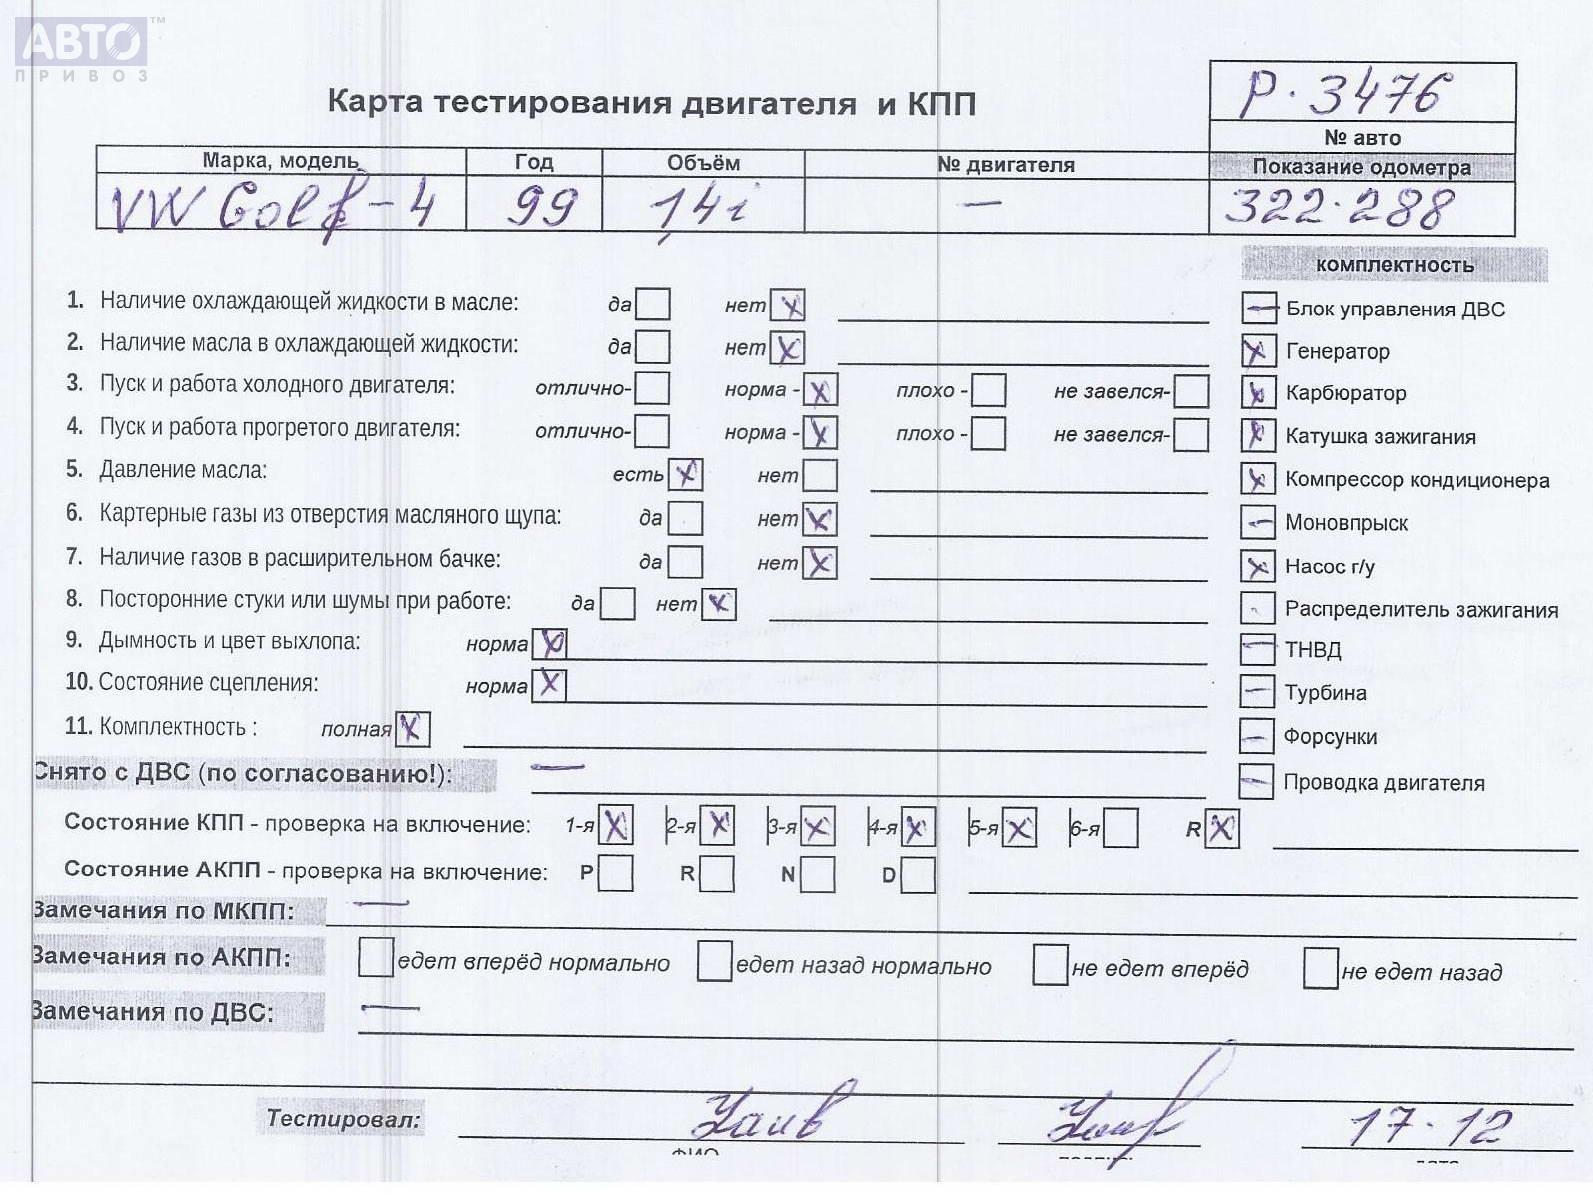 АВТО™
ПРИВОЗ
Карта тестирования двигателя и КПП
P.3476
№ авто
Марка, модель Год Объём № двигателя Показание одометра
VW Golf-4 99 1,4i — 322.288
комплектность
1. Наличие охлаждающей жидкости в масле: да нет x
— Блок управления ДВС
2. Наличие масла в охлаждающей жидкости: да нет x
x Генератор
3. Пуск и работа холодного двигателя: отлично- норма - x плохо - не завелся-
x Карбюратор
4. Пуск и работа прогретого двигателя: отлично- норма - x плохо - не завелся-
x Катушка зажигания
5. Давление масла: есть x нет
x Компрессор кондиционера
6. Картерные газы из отверстия масляного щупа: да нет x
— Моновпрыск
7. Наличие газов в расширительном бачке: да нет x
x Насос г/у
8. Посторонние стуки или шумы при работе: да нет x
- Распределитель зажигания
9. Дымность и цвет выхлопа: норма x
— ТНВД
10. Состояние сцепления: норма x
— Турбина
11. Комплектность : полная x
— Форсунки
Снято с ДВС (по согласованию!): —
— Проводка двигателя
Состояние КПП - проверка на включение: 1-я x 2-я x 3-я x 4-я x 5-я x 6-я R x
Состояние АКПП - проверка на включение: P R N D
Замечания по МКПП: —
Замечания по АКПП: едет вперёд нормально едет назад нормально не едет вперёд не едет назад
Замечания по ДВС: —
Тестировал: 17.12
ФИО подпись дата